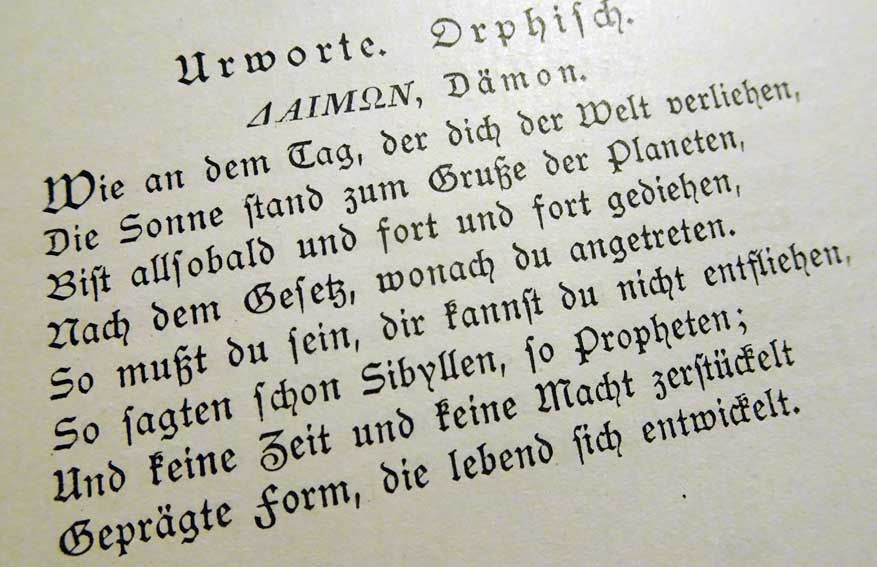 Urworte. Orphisch.
ΔΑΙΜΩΝ, Dämon.
Wie an dem Tag, der dich der Welt verliehen,
Die Sonne stand zum Gruße der Planeten,
Bist allsobald und fort und fort gediehen,
Nach dem Gesetz, wonach du angetreten.
So mußt du sein, dir kannst du nicht entfliehen,
So sagten schon Sibyllen, so Propheten;
Und keine Zeit und keine Macht zerstückelt
Geprägte Form, die lebend sich entwickelt.